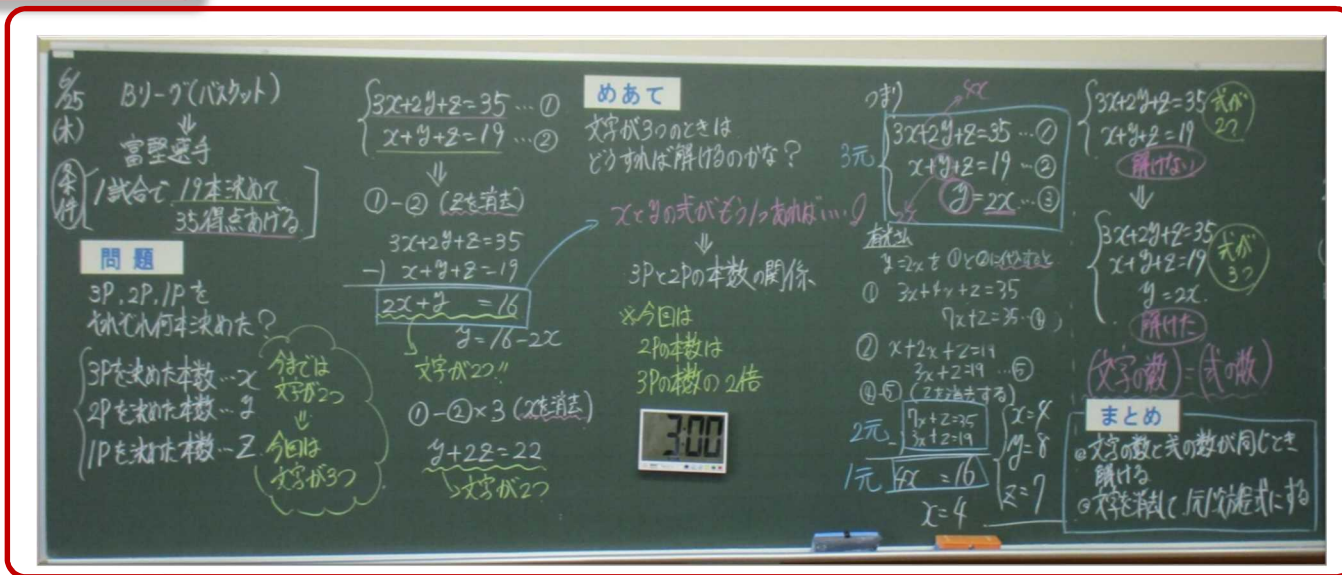 6/25
(木)
Bリーグ(バスケット)
⇓
富 選手
条件
1試合で 19本決めて
35得点あげる
問題
3P, 2P, 1Pを
それぞれ何本決めた?
3Pを決めた本数…x
2Pを決めた本数…y
1Pを決めた本数…z
今までは
文字が2つ
⇓
今回は
文字が3つ
3x+2y+z=35 …①
x+y+z=19 …②
⇓
①-② (zを消去)
3x+2y+z=35
-) x+y+z=19
2x+y =16
y=16-2x
文字が2つ!!
①-②×3 (xを消去)
y+2z=22
文字が2つ
めあて
文字が3つのときは
どうすれば解けるのかな?
xとyの式がもう1つあれば…!
⇓
3Pと2Pの本数の関係
※今回は
2Pの本数は
3Pの本数の2倍
3:00
つまり
4x
3元
3x+2y+z=35 …①
x+y+z=19 …②
y=2x …③
2x
y=2xを①と②に代入すると
① 3x+4x+z=35
7x+z=35…④
② x+2x+z=19
3x+z=19 …⑤
④-⑤ (zを消去する)
2元
7x+z=35
- 3x+z=19
1元
4x =16
x=4
x=4
y=8
z=7
3x+2y+z=35
x+y+z=19
式が
2つ
解けない
⇓
3x+2y+z=35
x+y+z=19
y=2x
式が
3つ
解けた
(文字の数)=(式の数)
まとめ
◎文字の数と式の数が同じとき
解ける
◎文字を消去して1元1次方程式にする